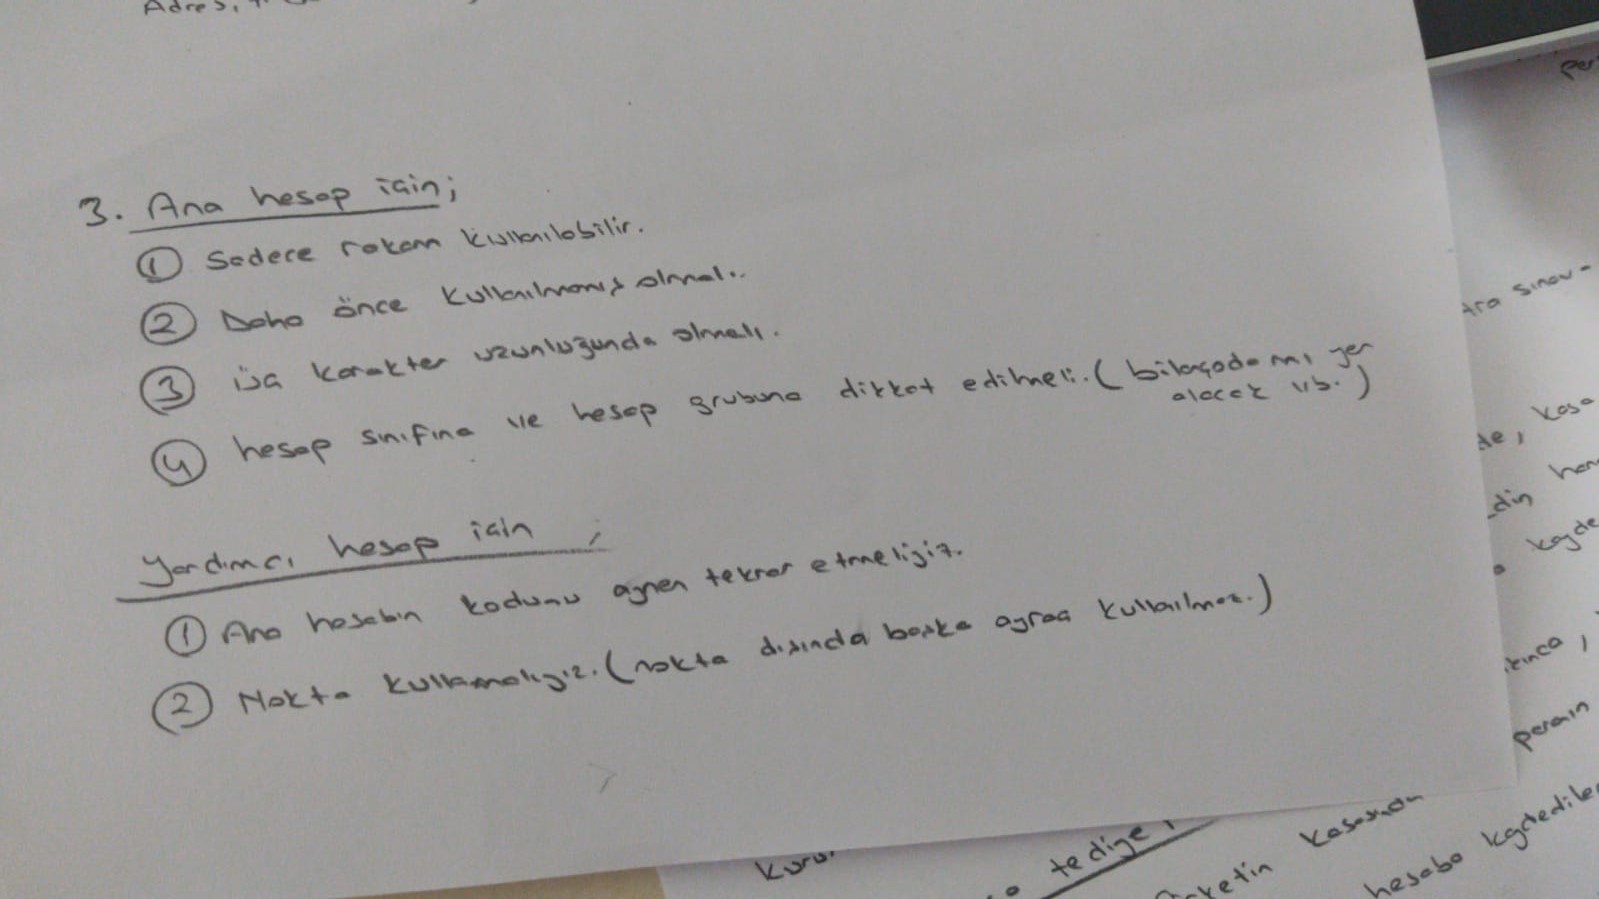 Adres,
3. Ana hesap için;
① Sadece rakam kullanılabilir.
② Daha önce kullanılmamış olmalı.
③ üç karakter uzunluğunda olmalı.
④ hesap sınıfına ve hesap grubuna dikkat edilmeli. (bilançoda mı yer
alacak vb.)
Yardımcı hesap için ;
① Ana hesabın kodunu aynen tekrar etmeliyiz.
② Nokta kullanmalıyız. (nokta dışında başka ayraç kullanılmaz.)
sınav-
de, kasa
kayde
perain
tediye
kasasından
hesaba kaydedile